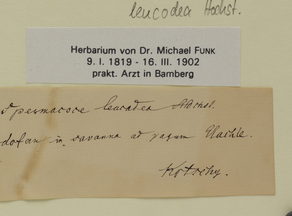 leucodea Hochst.
Herbarium von Dr. Michael FUNK
9. I. 1819 - 16. III. 1902
prakt. Arzt in Bamberg
Spermacoce leucadea Hochst.
dofan in savanna ad pagum
Kotschy.